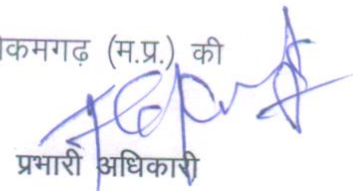 कमगढ़ (म.प्र.) की
प्रभारी अधिकारी